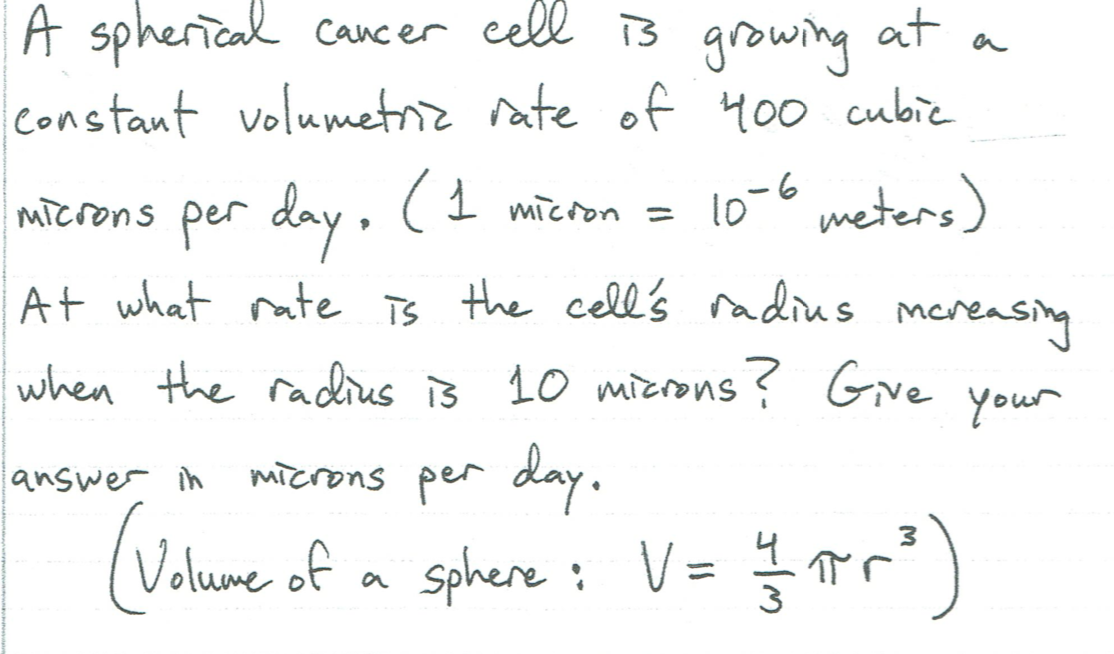 A spherical cancer cell is growing at a
constant volumetric rate of 400 cubic
microns per day. (1 micron = 10⁻⁶ meters)
At what rate is the cell's radius increasing
when the radius is 10 microns? Give your
answer in microns per day.
(Volume of a sphere: V = 4/3 πr³)